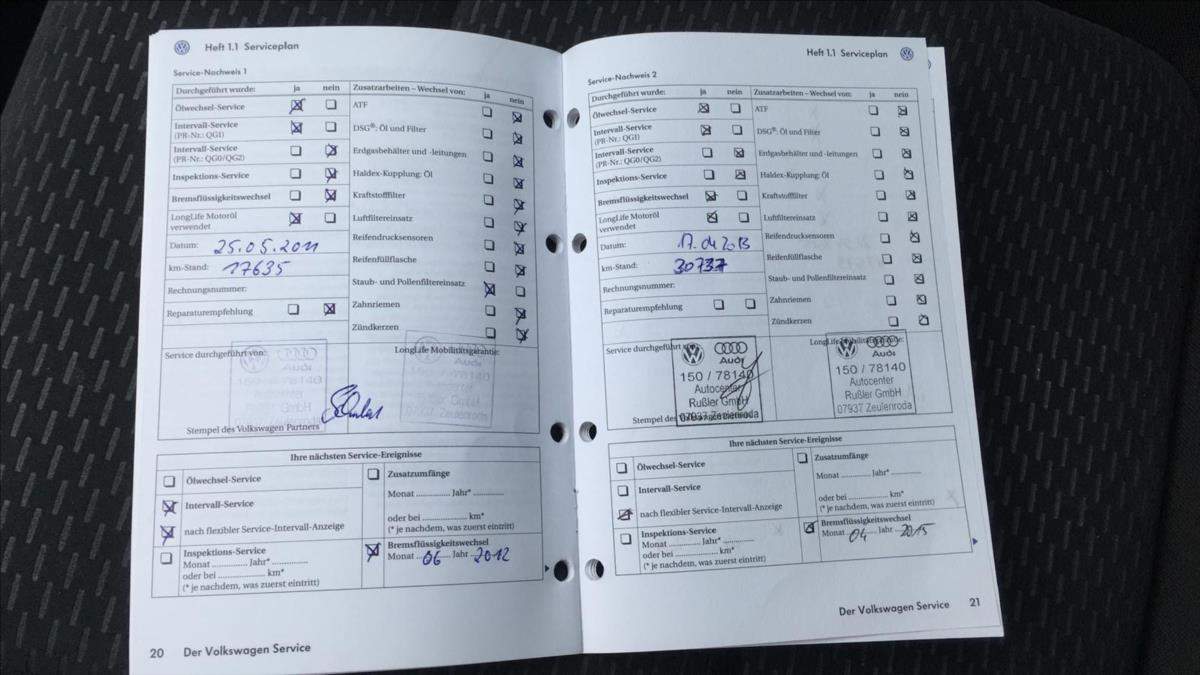 Heft 1.1 Serviceplan
Service-Nachweis 1
Durchgeführt wurde: ja nein
Ölwechsel-Service
Intervall-Service
(PR-Nr.: QG1)
Intervall-Service
(PR-Nr.: QG0/QG2)
Inspektions-Service
Bremsflüssigkeitswechsel
LongLife Motoröl
verwendet
Datum: 25.05.2011
km-Stand: 17635
Rechnungsnummer:
Reparaturempfehlung
Zusatzarbeiten – Wechsel von: ja nein
ATF
DSG®: Öl und Filter
Erdgasbehälter und -leitungen
Haldex-Kupplung: Öl
Kraftstofffilter
Luftfiltereinsatz
Reifendrucksensoren
Reifenfüllflasche
Staub- und Pollenfiltereinsatz
Zahnriemen
Zündkerzen
Service durchgeführt von:
LongLife Mobilitätsgarantie:
Audi
150 / 78140
GmbH
Stempel des Volkswagen Partners
Ihre nächsten Service-Ereignisse
Ölwechsel-Service
Intervall-Service
nach flexibler Service-Intervall-Anzeige
Inspektions-Service
Monat .............. Jahr* ..............
oder bei .............. km*
(* je nachdem, was zuerst eintritt)
Zusatzumfänge
Monat .............. Jahr* ..............
oder bei .............. km*
(* je nachdem, was zuerst eintritt)
Bremsflüssigkeitswechsel
Monat 06 Jahr 2012
20 Der Volkswagen Service
Heft 1.1 Serviceplan
Service-Nachweis 2
Durchgeführt wurde: ja nein
Ölwechsel-Service
Intervall-Service
(PR-Nr.: QG1)
Intervall-Service
(PR-Nr.: QG0/QG2)
Inspektions-Service
Bremsflüssigkeitswechsel
LongLife Motoröl
verwendet
Datum: 17.04.2013
km-Stand: 30737
Rechnungsnummer:
Reparaturempfehlung
Zusatzarbeiten – Wechsel von: ja nein
ATF
DSG®: Öl und Filter
Erdgasbehälter und -leitungen
Haldex-Kupplung: Öl
Kraftstofffilter
Luftfiltereinsatz
Reifendrucksensoren
Reifenfüllflasche
Staub- und Pollenfiltereinsatz
Zahnriemen
Zündkerzen
Service durchgeführt von:
Audi
150 / 78140
Autocenter
Rußler GmbH
07937 Zeulenroda
Stempel des
LongLife Mobilitätsgarantie:
Audi
150 / 78140
Autocenter
Rußler GmbH
07937 Zeulenroda
Ihre nächsten Service-Ereignisse
Ölwechsel-Service
Intervall-Service
nach flexibler Service-Intervall-Anzeige
Inspektions-Service
Monat .............. Jahr* ..............
oder bei .............. km*
(* je nachdem, was zuerst eintritt)
Zusatzumfänge
Monat .............. Jahr* ..............
oder bei .............. km*
(* je nachdem, was zuerst eintritt)
Bremsflüssigkeitswechsel
Monat 04 Jahr 2015
Der Volkswagen Service 21